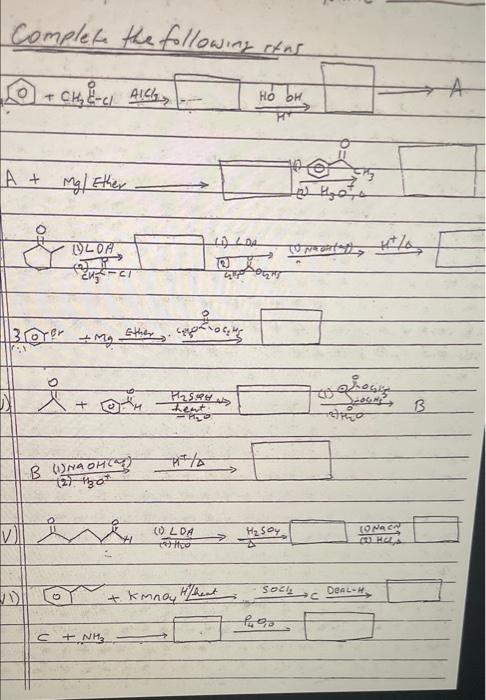 Complete the following rxns
+ CH3 C-Cl AlCl3 HO OH H+ A
A + Mg/Ether (1) O CH3 (2) H3O+ Δ
O (1) LDA (2) O CH3 C-Cl (1) LDA (2) O C2H5O OC2H5 (1) NaOH(aq) H+/Δ
3 Br + Mg Ether O C2H5O OC2H5
O + O H H2SO4 heat -H2O (1) O OC2H5 (2) H2O B
B (1) NaOH(aq) (2) H3O+ H+/Δ
V) O O H (1) LDA (2) H2O H2SO4 Δ (1) NaCN (2) HCl
VI) + KMnO4 H+/heat SOCl2 C
C + NH3 P4O10